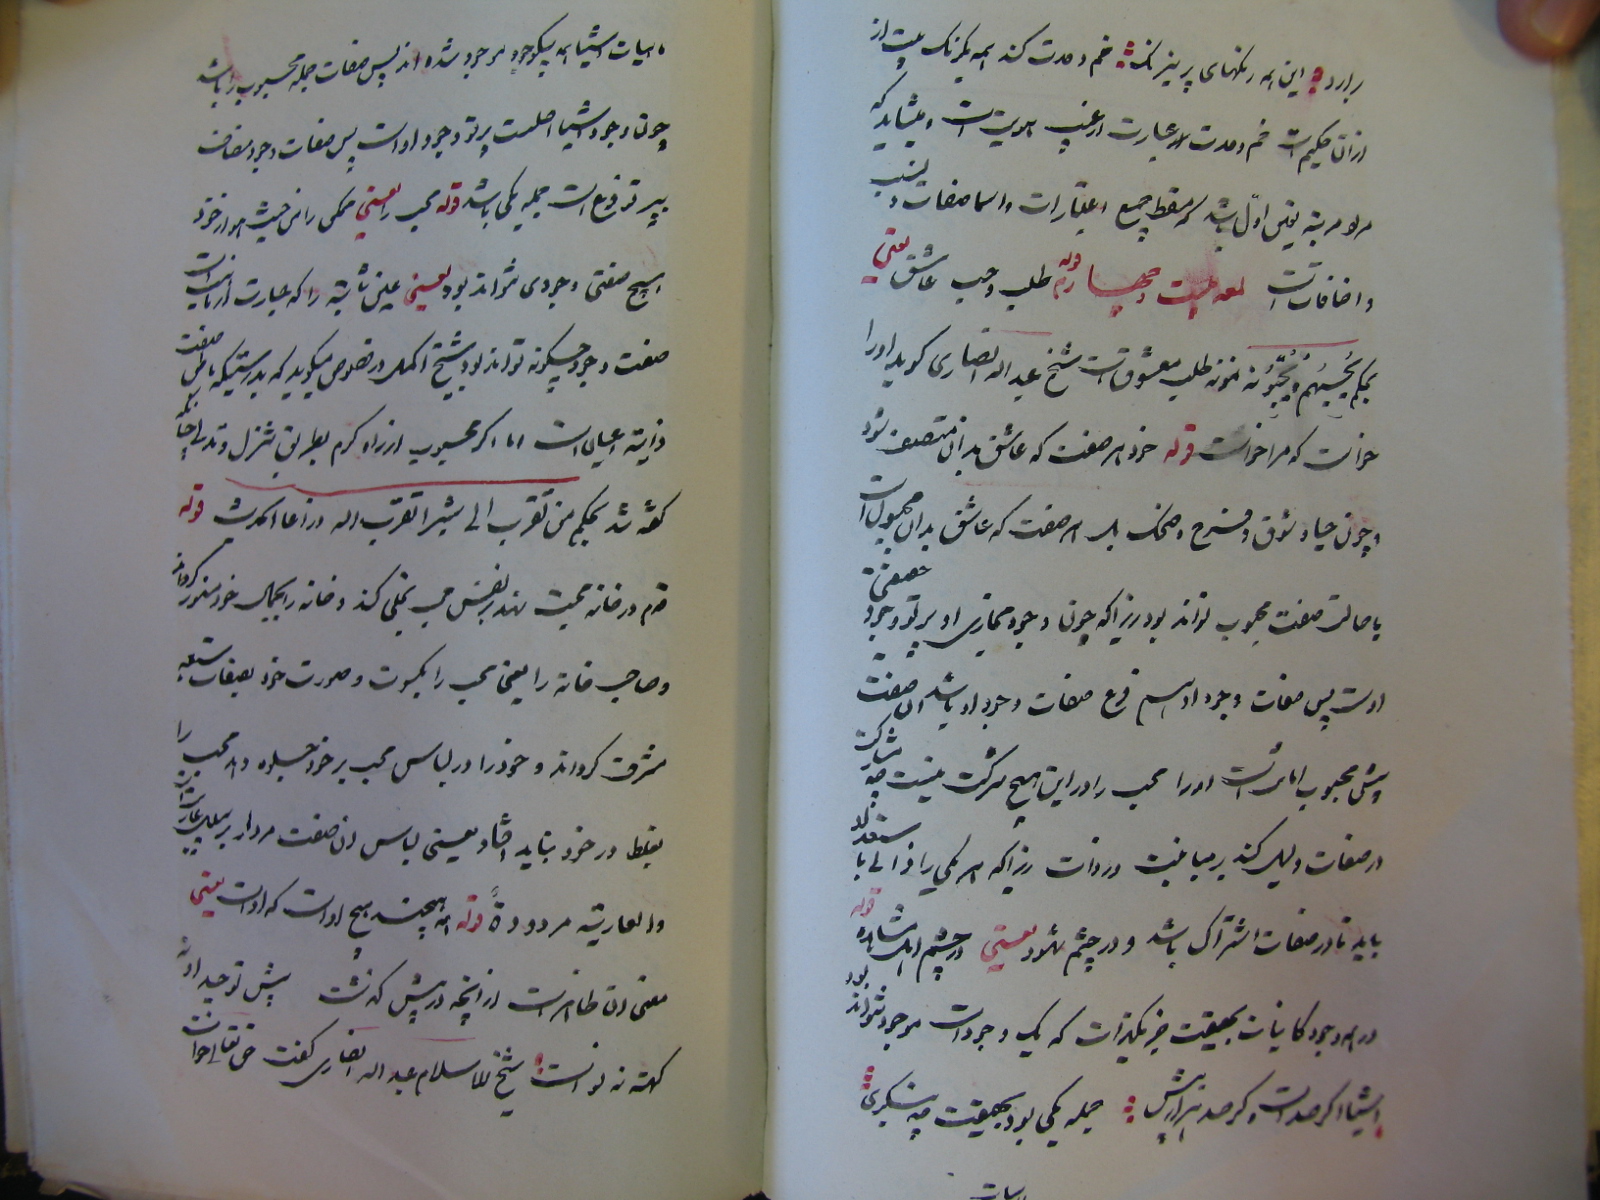 برارد این همه رنگهای پر نیرنگ خم وحدت کند همه یکرنگ بیت از
ازان حکیم است خم وحدت عبارت از غیب هویت است و میشاید که
مراد مرتبه تعین اول باشد که مسقط جمیع اعتبارات و اسما صفات و نسب
و اضافات است لمعه بیست و چهارم قوله طلب و حب عاشق یعنی
بحکم یُحِبُّهُم وَ یُحِبُّونَه نمونه طلب معشوق است شیخ عبد اله انصاری کوید او را
خواست که مرا خواست قوله خود هر صفت که عاشق بدان متصف شود
و چون حیا و شوق و فرح و ضحک بل هر صفت که عاشق بدان مجبول است
باصالت صفت محبوب تواند بود زیرا که چون وجود مجازی او پرتو وجود حقیقی
اوست پس صفات وجود او هم فرع صفات وجود او باشد آن صفت
پیش محبوب امانت است او را محب را در این هیچ شرکت نیست چه مشارکت
در صفات دلیل کند بر مباینت در ذات زیرا که هر یکی را ذاتی با استعداد
باید تا در صفات اشتراک باشد و در چشم شهود یعنی در چشم اهل مشاهده قوله
در همه وجود کاینات بحقیقت جز یکذات که یک وجود است موجود نتواند بود
اشیا اکر صد است و کر صد هزار بیش جمله یکی بود بحقیقت چه بنکری
ماهیات
ماهیات اشیا همه بیکوجود موجود شده اند پس صفات جمله محبوب را باشد
چون وجود اشیا پرتو وجود او است پس صفات وجود مضاف
بپرتو فرع است جمله یکی باشد قوله محب را یعنی ممکن را من حیث هو از خود
هیچ صفتی وجودی نتواند بود یعنی عین ثابته را که عبارت از ماهیت است
صفت وجود چکونه تواند بود شیخ اکمل در نصوص میکوید که بدرستیکه باطن صفت
ذاتیه اعیان است اما اکر محبوب از راه کرم بطریق تنزل و تدلی چنانکه
کفته شد بحکم من تقرب الی شبرا تقرب اله ذراعا الحدیث قوله
قدم در خانه محبت نهد بنفس حب تجلی کند و خانه را بجمال خود منور کرداند
و صاحب خانه را یعنی محب را بکسوت و صورت خود بصفات سبعه
مشرف کرداند و خود را در لباس محب بر خود جلوه دهد محب را
بغلط در خود نباید افتاد یعنی لباس ان صفت مر او را بر سبیل عاریت است
والعاریة مردودةٌ قوله همه هیچند هیچ اوست که اوست یعنی
معنی ان ظاهر است از انچه در پیش کذشت پیش توحید او نه
کهنه نه نو است شیخ الاسلام عبد اله انصاری کفت حق تعالی خواست